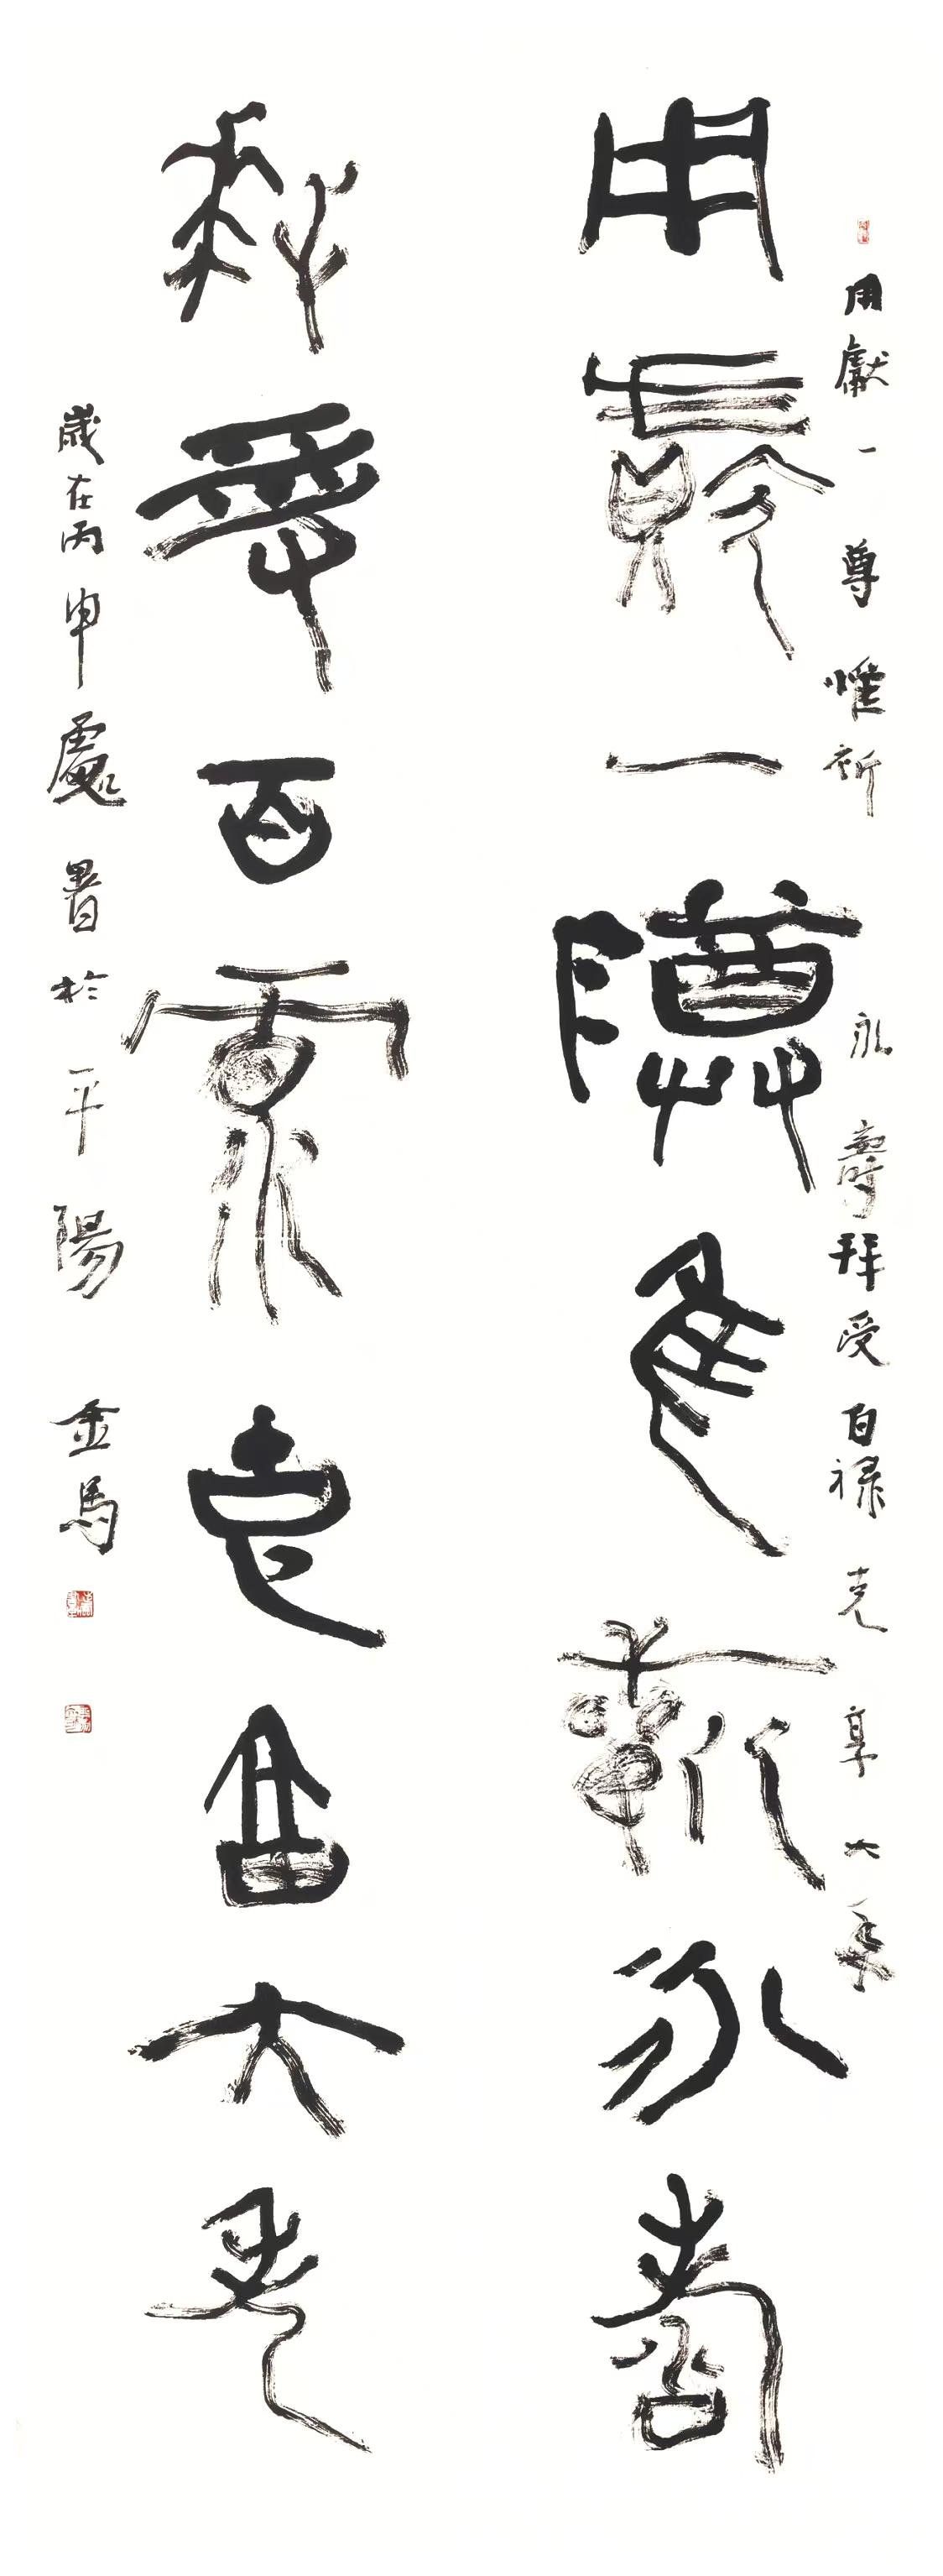 用獻一尊惟祈永壽拜受百祿克享大年
用獻一尊惟祈永壽
拜受百祿克享大年
歲在丙申處暑於平陽金馬